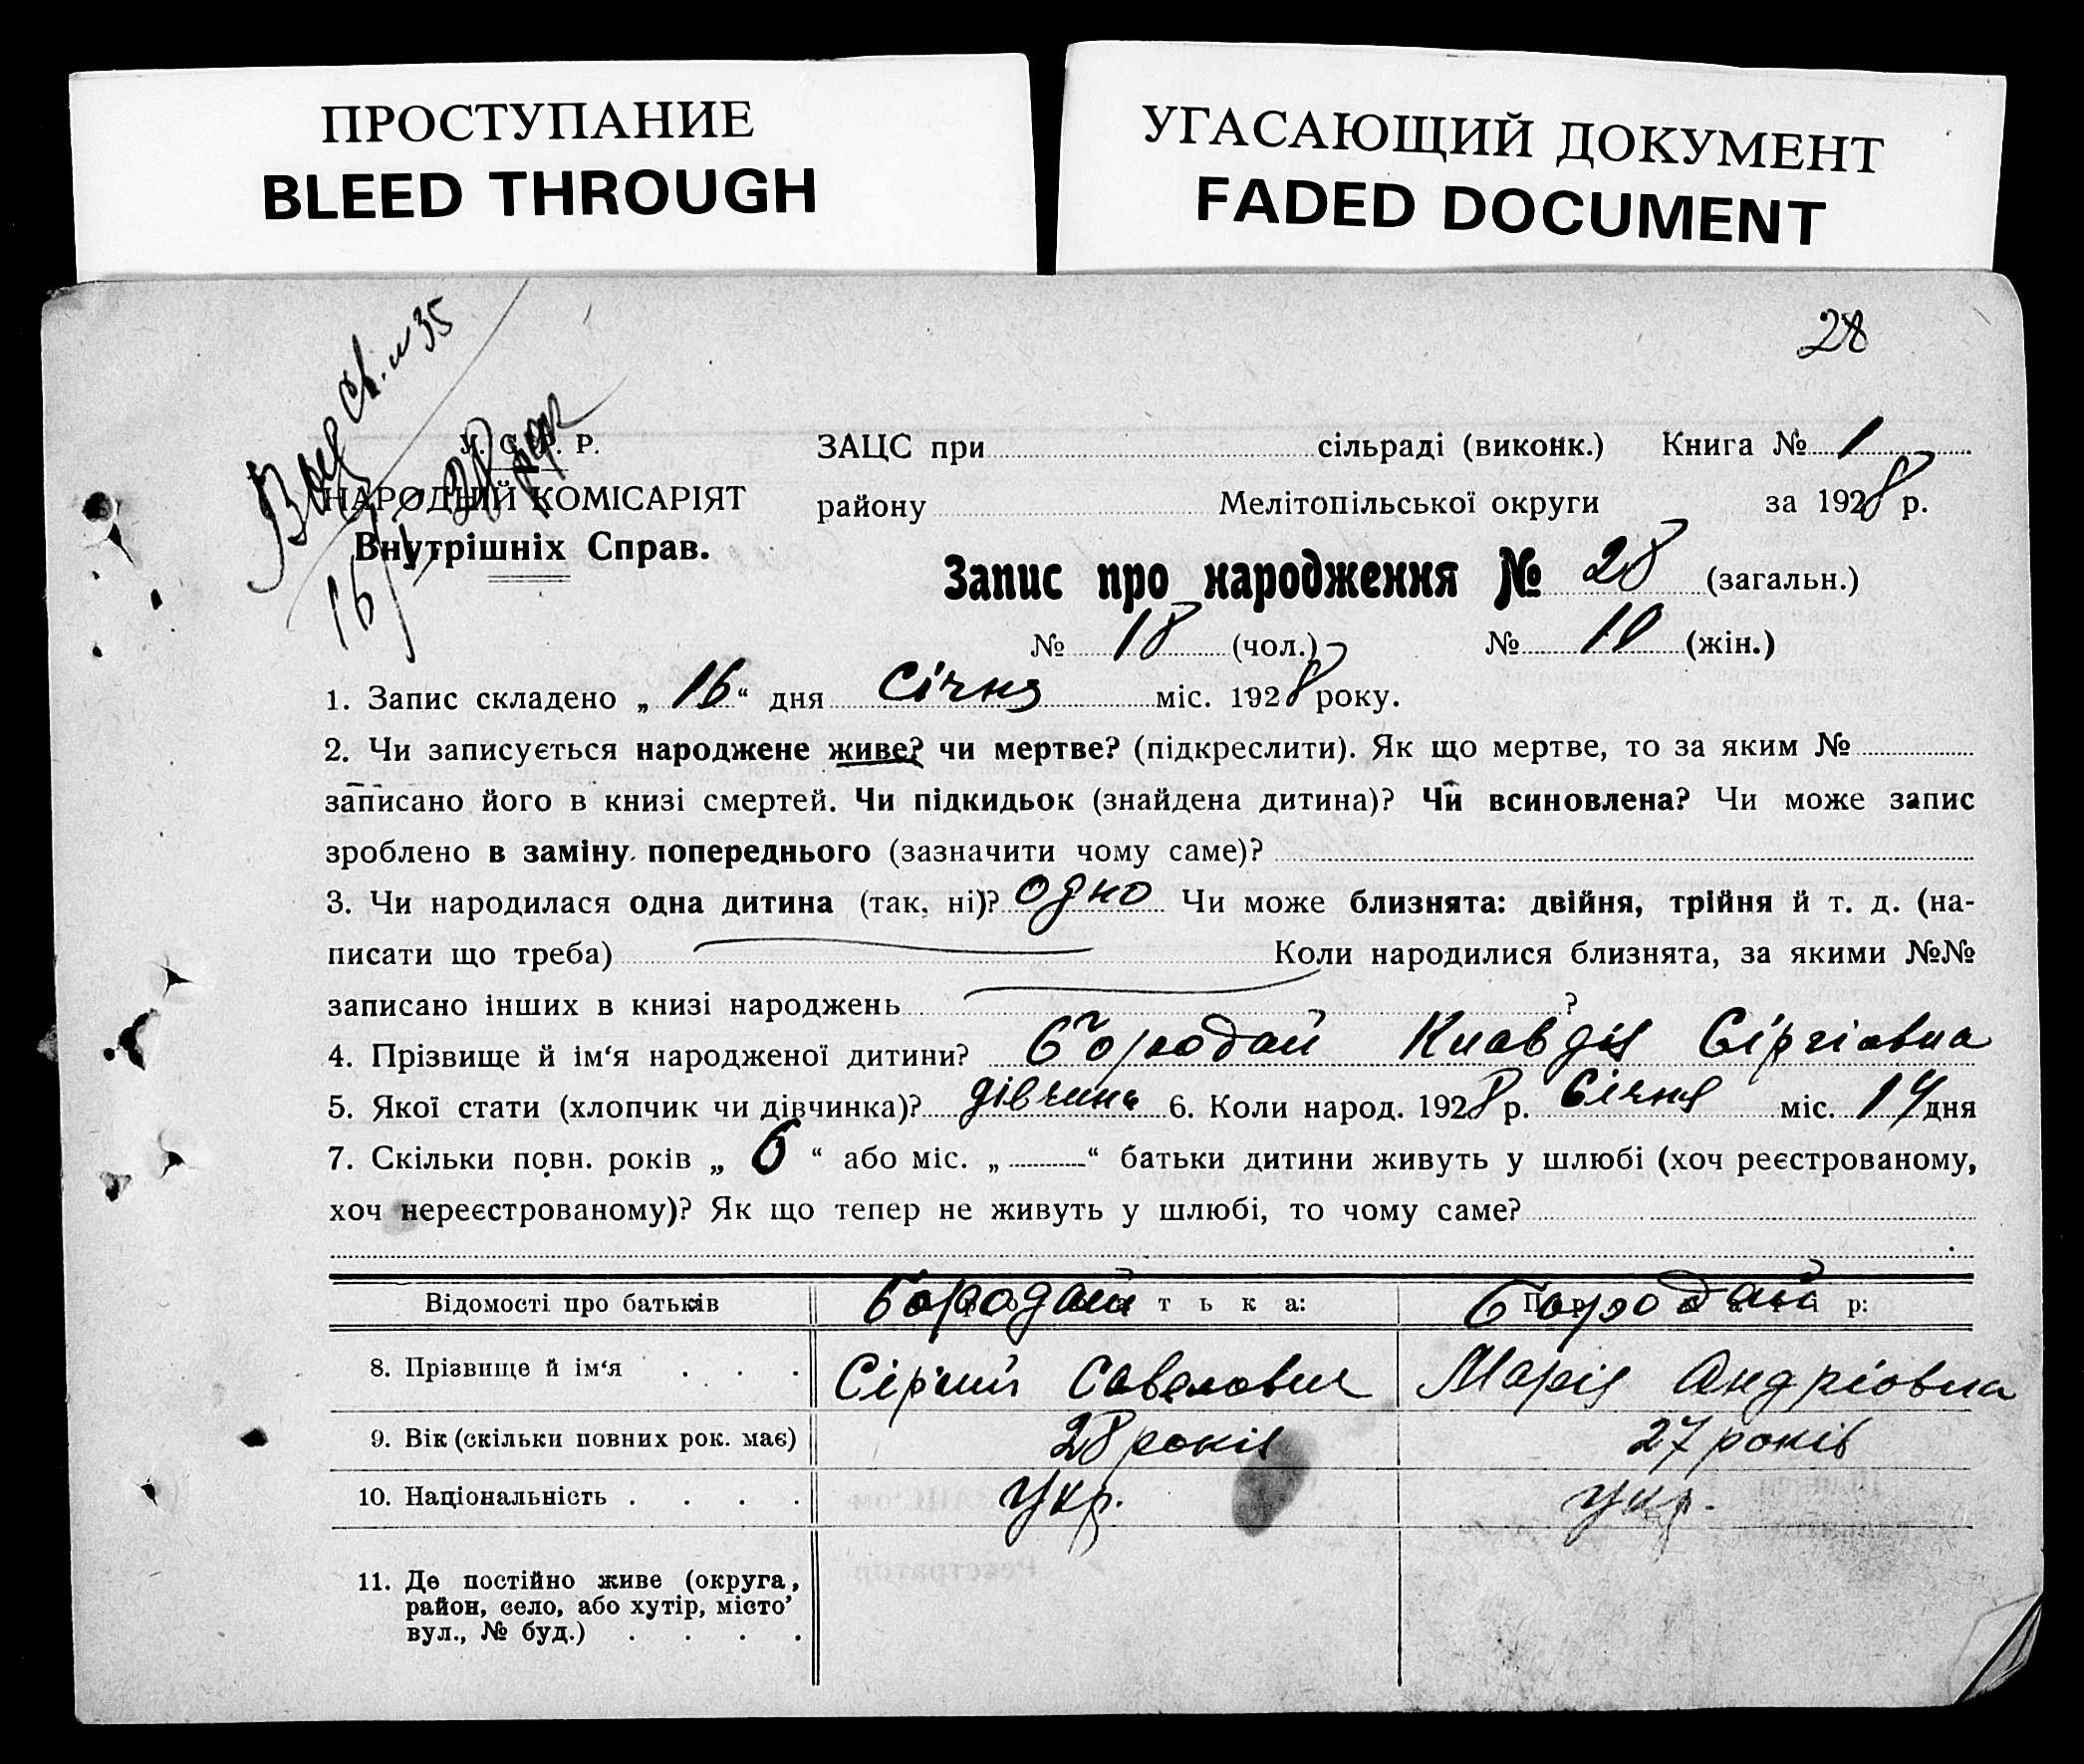 ПРОСТУПАНИЕ
BLEED THROUGH
УГАСАЮЩИЙ ДОКУМЕНТ
FADED DOCUMENT
28
св. № 35
16/I-28
У. С. Р. Р.
НАРОДНІЙ КОМІСАРІЯТ
Внутрішніх Справ.
ЗАЦС при сільраді (виконк.) Книга № 1
району Мелітопільської округи за 1928 р.
Запис про народження № 28 (загальн.)
№ 18 (чол.) № 10 (жін.)
1. Запис складено „ 16 “ дня Січня міс. 1928 року.
2. Чи записується народжене живе? чи мертве? (підкреслити). Як що мертве, то за яким №
записано його в книзі смертей. Чи підкидьок (знайдена дитина)? Чи всиновлена? Чи може запис
зроблено в заміну попереднього (зазначити чому саме)?
3. Чи народилася одна дитина (так, ні)? одно Чи може близнята: двійня, трійня й т. д. (на-
писати що треба) Коли народилися близнята, за якими №№
записано інших в книзі народжень ?
4. Прізвище й ім‘я народженої дитини? Бородай Клавдія Сіргіовна
5. Якої стати (хлопчик чи дівчинка)? дівчина 6. Коли народ. 1928 р. Січня міс. 14 дня
7. Скільки повн. років „ 6 “ або міс. „ “ батьки дитини живуть у шлюбі (хоч реєстрованому,
хоч нереєстрованому)? Як що тепер не живуть у шлюбі, то чому саме?
Відомості про батьків Бородай т ь к а: Бородай р:
8. Прізвище й ім‘я . . . Сіргий Савелович Марія Андріовна
9. Вік (скільки повних рок. має) 28 років 27 років
10. Національність . . . . Укр. Укр.
11. Де постійно живе (округа,
район, село, або хутір, місто’
вул., № буд.) . . . .